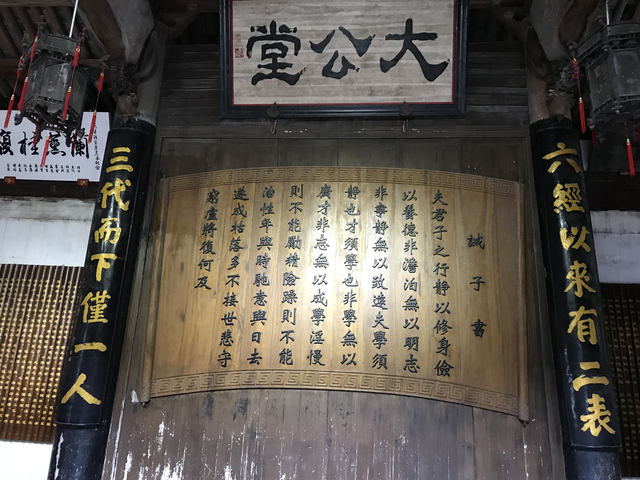 大公堂
蘭薰桂馥
六經以來有二表
三代而下僅一人
誡子書
夫君子之行靜以修身儉
以養德非澹泊無以明志
非寧靜無以致遠夫學須
靜也才須學也非學無以
廣才非志無以成學淫慢
則不能勵精險躁則不能
治性年與時馳意與日去
遂成枯落多不接世悲守
窮廬將復何及